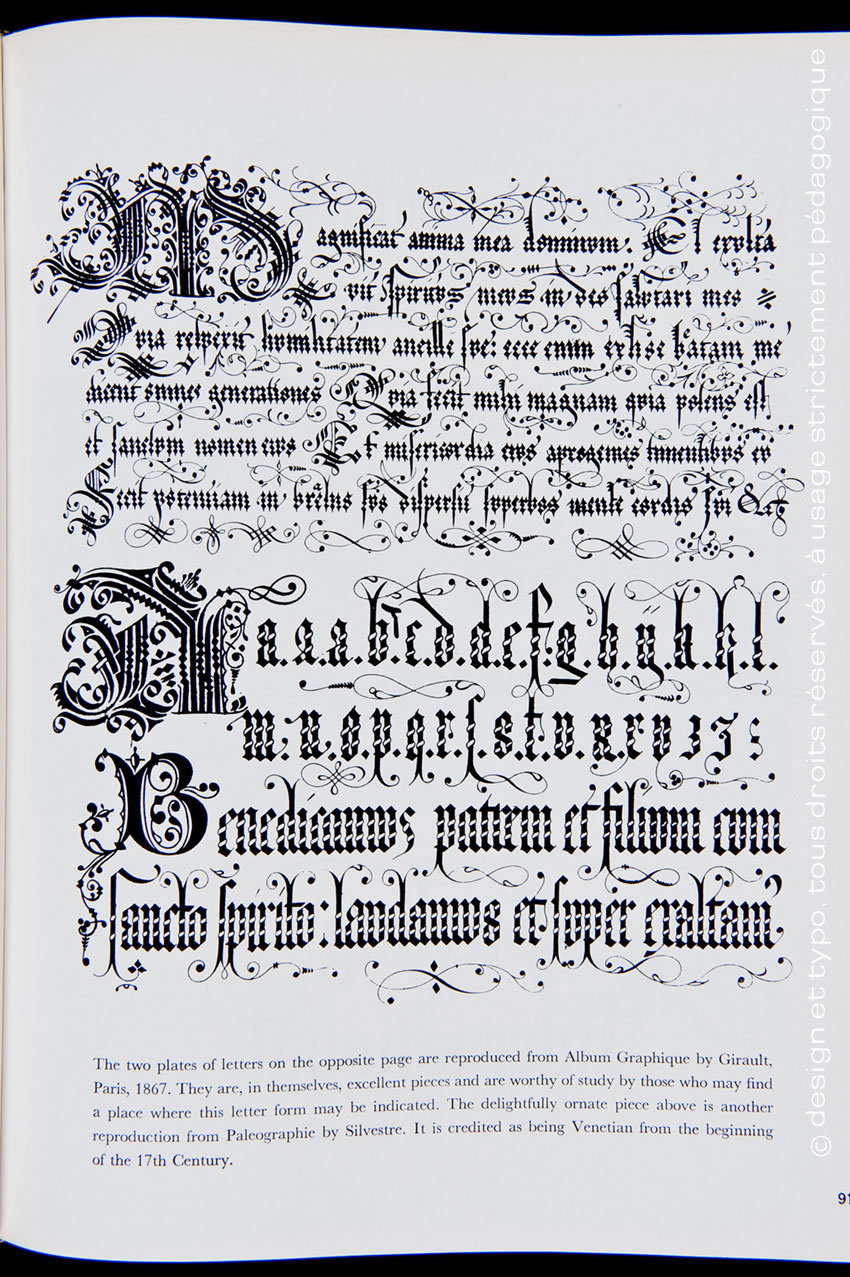 Magnificat anima mea dominum: Et exulta
vit spiritus meus in deo salutari meo
Quia respexit humilitatem ancille sue: ecce enim ex hoc beatam me
dicent omnes generationes Quia fecit mihi magnam quia potens est
et sanctum nomen eius Et misericordia eius a progenies timentibus eu
Fecit potentiam in brachio suo dispersit superbos mente cordis sui &c
A a.a.a.b.c.d.d.e.f.g.h.ij.k.k.l.
m.n.o.p.q.r.s.s.t.v.x.
Benedicamus patrem et filium cum
sancto spirito: laudamus et super exaltam
The two plates of letters on the opposite page are reproduced from Album Graphique by Girault,
Paris, 1867. They are, in themselves, excellent pieces and are worthy of study by those who may find
a place where this letter form may be indicated. The delightfully ornate piece above is another
reproduction from Paleographie by Silvestre. It is credited as being Venetian from the beginning
of the 17th Century.
91
© design et typo. tous droits réservés. à usage strictement pédagogique